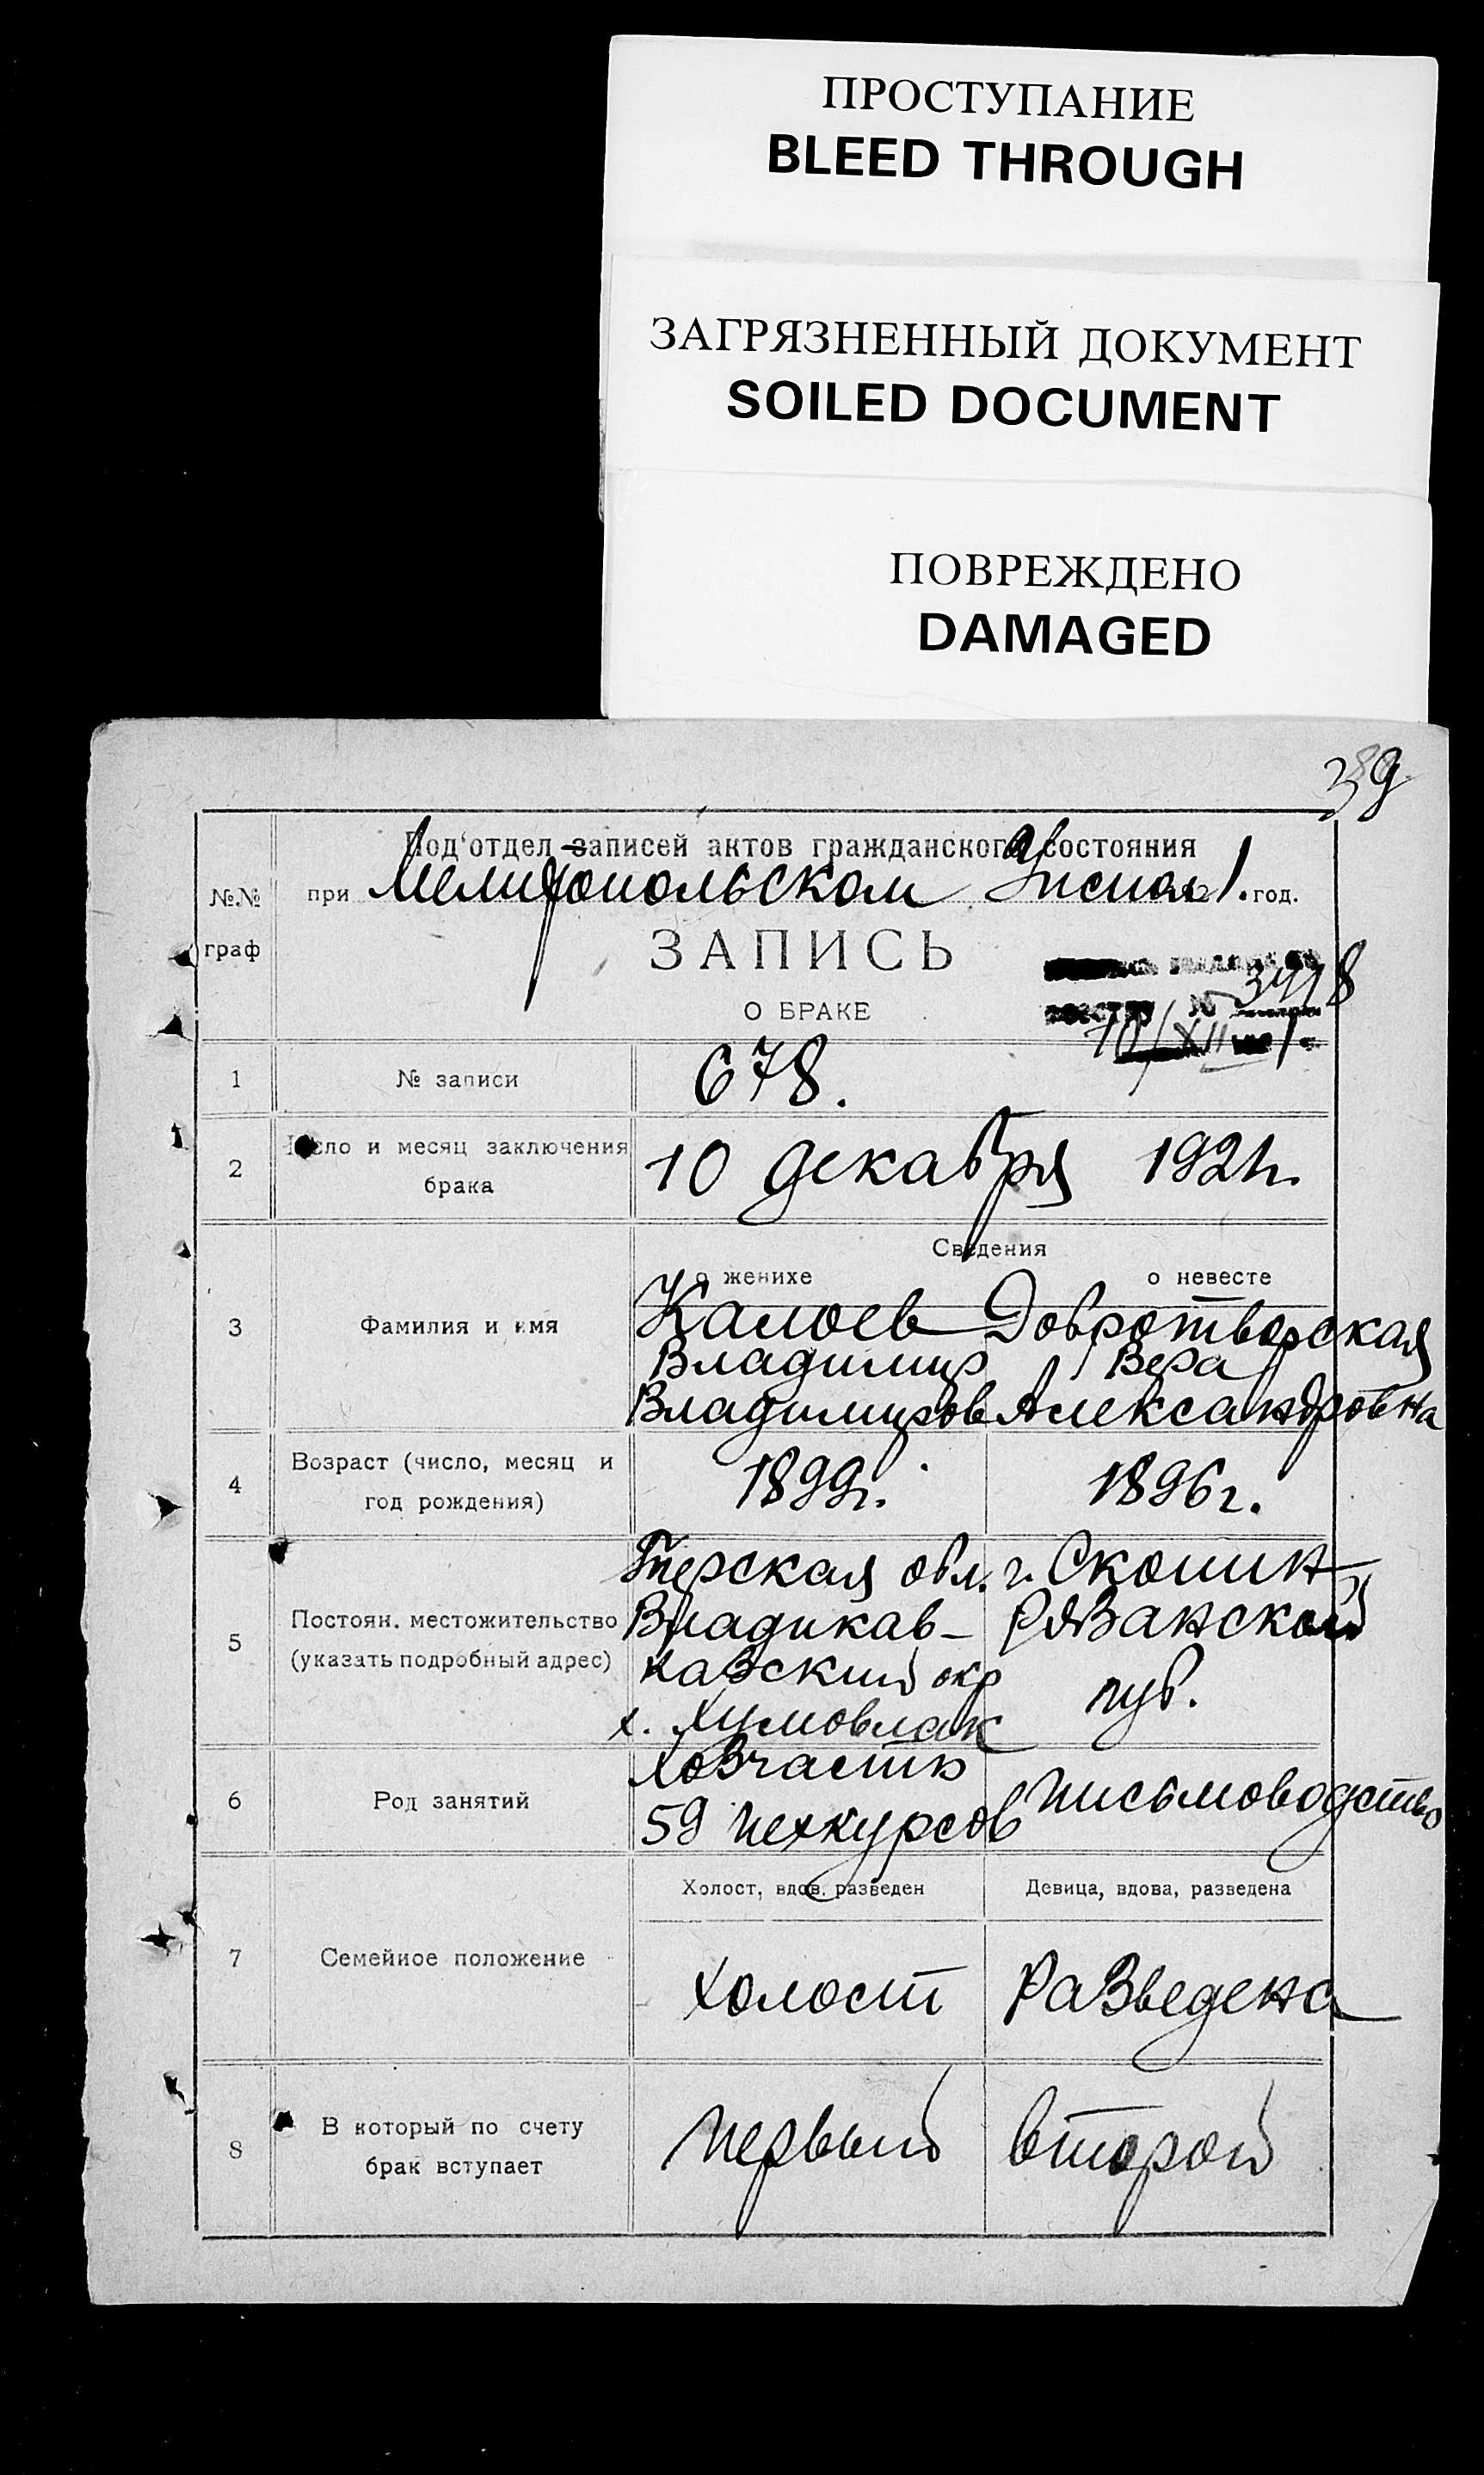 ПРОСТУПАНИЕ
BLEED THROUGH
ЗАГРЯЗНЕННЫЙ ДОКУМЕНТ
SOILED DOCUMENT
ПОВРЕЖДЕНО
DAMAGED
39
Под'отдел записей актов гражданского состояния
№№ граф
при Мелитопольском 1. год.
ЗАПИСЬ
О БРАКЕ
№ 3418
10/XII 1
1 № записи 678.
2 Число и месяц заключения брака
10 декабря 1921г.
Сведения
о женихе о невесте
3 Фамилия и имя
Калоев Добротворская
Владимир Вера
Владимиров Александровна
4 Возраст (число, месяц и год рождения)
1899г. 1896г.
5 Постоян. местожительство (указать подробный адрес)
Терская обл. г. Скопин
Владикав- Рязанской
казский окр губ.
х. Хумовлак
6 Род занятий
Хозчасть
59 Пехкурсов Письмоводство
Холост, вдов. разведен Девица, вдова, разведена
7 Семейное положение
холост Разведена
8 В который по счету брак вступает
первый второй